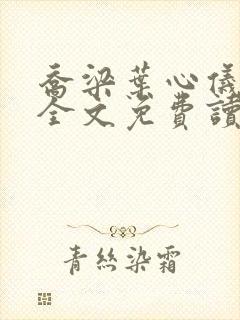 喬梁葉心儀
全文免費讀
青絲染霜